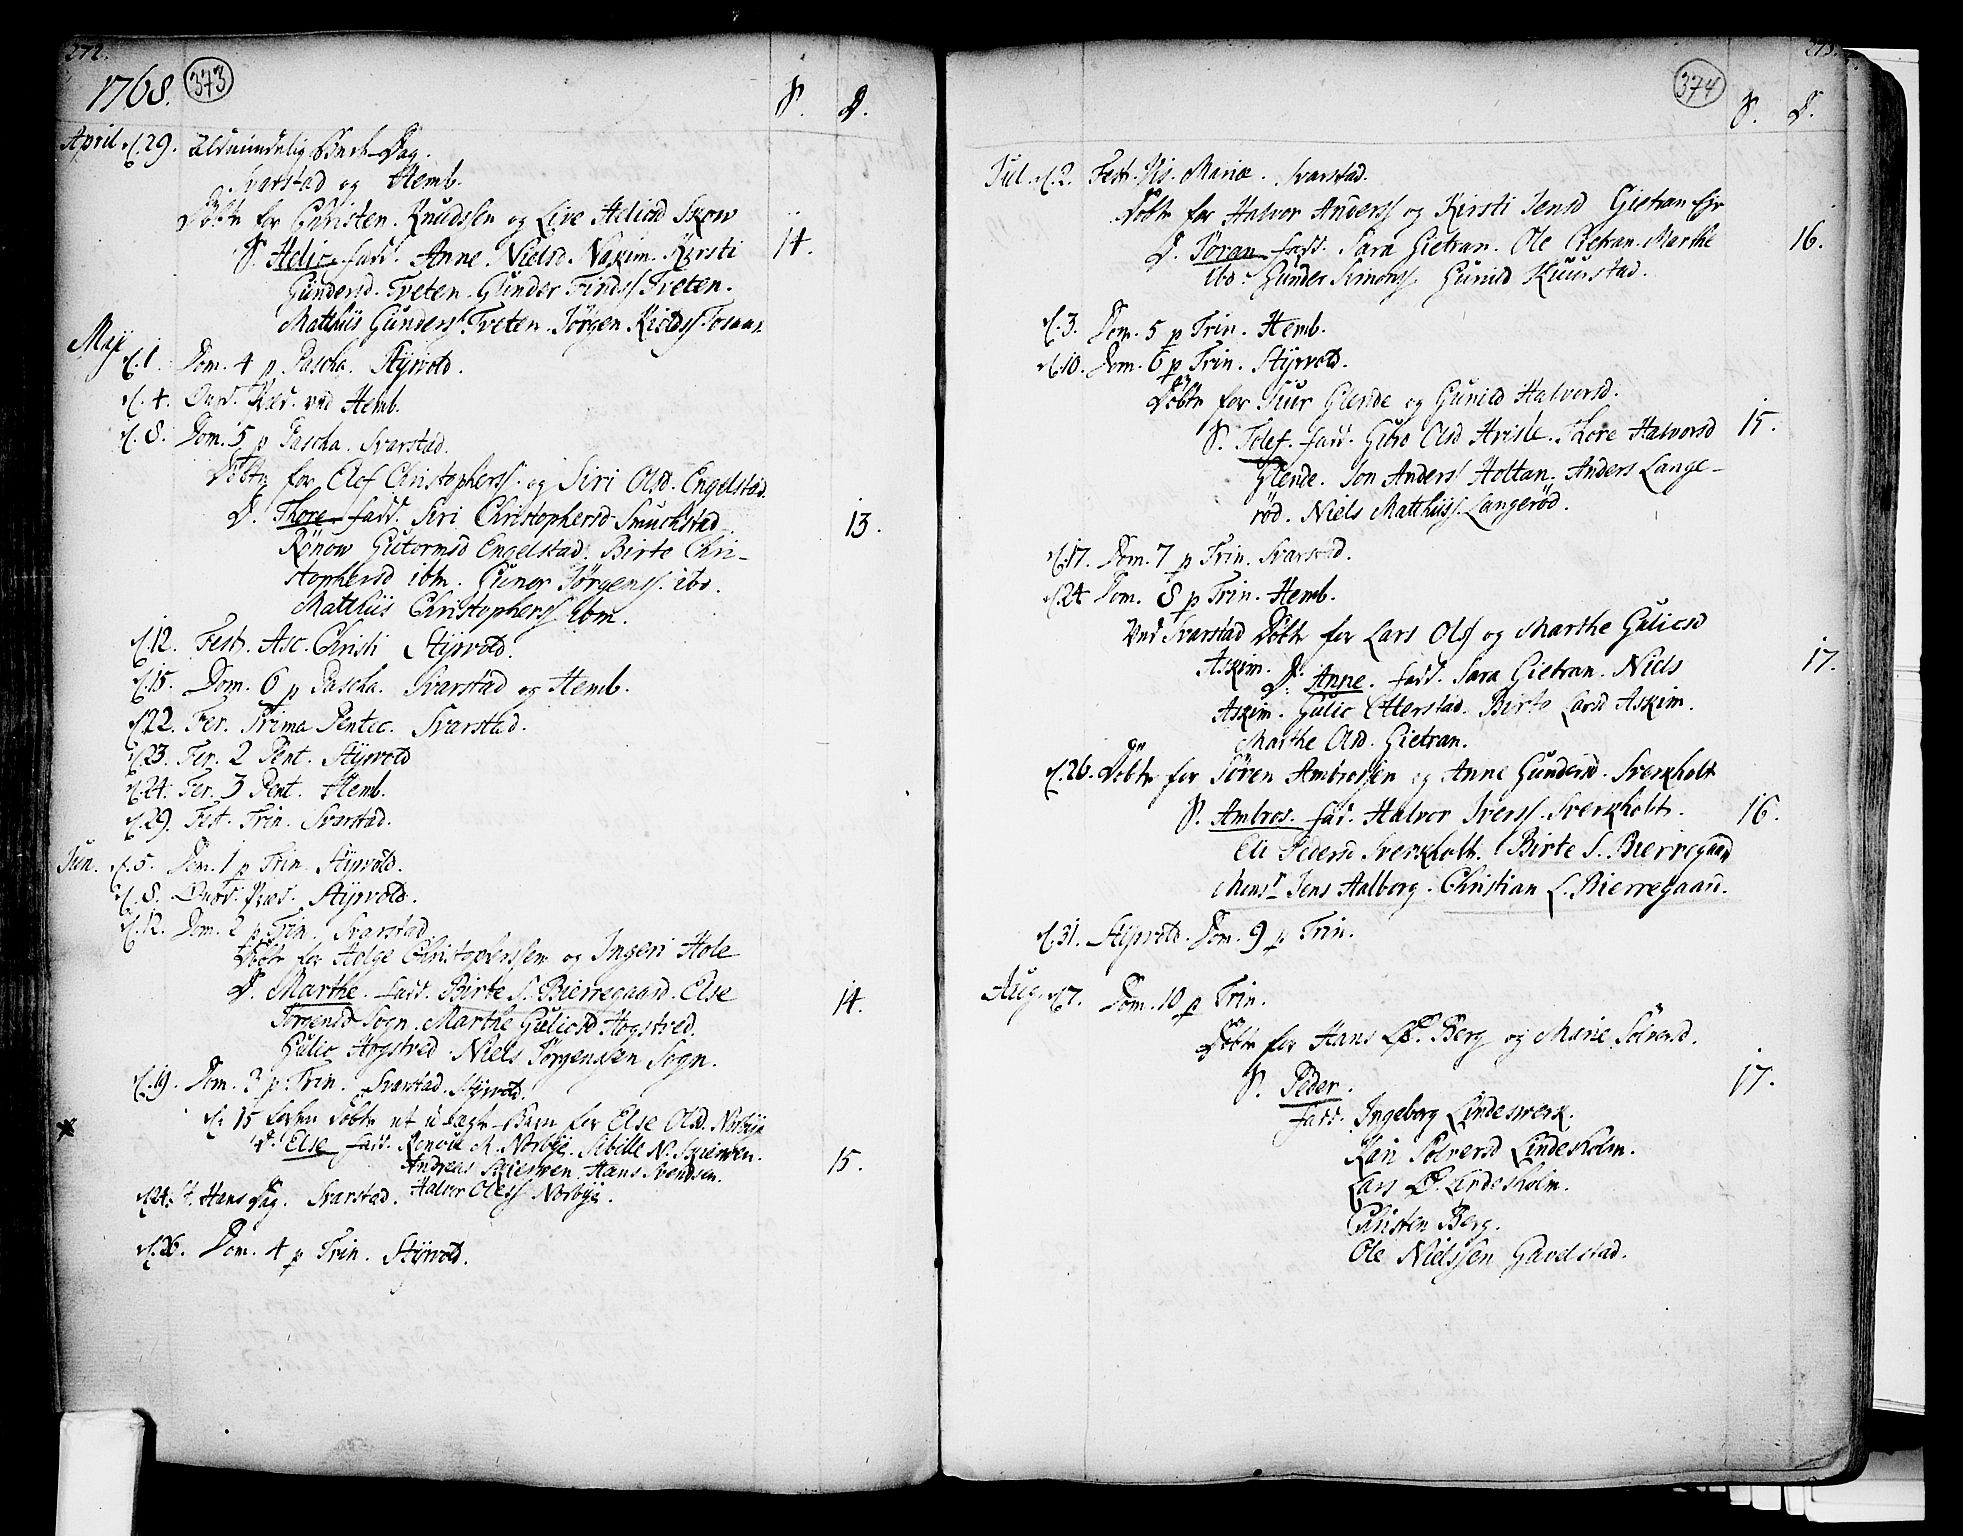 272.
1768. 373
S. D.
April d. 29. Almindelig Bede-Dag.
Svarstad og Hemb.
Döbt for Christen Knudssen og Live Heliesd Skow
S. Helie fadd. Anne Nielsd Naxim. Kirsti 14.
Gundersd. Tveten. Gunder Findss Tveten.
Matthiis Gunderss. Tveten. Jörgen
Maji
d. 1. Dom. 4 p Pascha. Styrvold.
d. 4. Onsd. Præd. ved Hemb.
d. 8. Dom. 5 p Pascha. Svarstad.
Döbt for Elef Christopherss. og Siri Olsd. Engelstad.
D. Thore fadd. Siri Christophersd Smuckstad 13.
Rönow Gutormsd Engelstad. Birte Chri-
stophersd ibm. Guner Jörgenss. ibd.
Matthiis Christopherss ibm.
d. 12. Fest. Asc. Christi Styrvold.
d. 15. Dom. 6 p Pascha. Svarstad og Hemb.
d. 22. Fer. Prima Pentec. Svarstad.
d. 23. Fer. 2 Pent. Styrvold
d. 24. Fer. 3 Pent. Hemb.
d. 29. Fest. Trin. Svarstad.
Jun. d. 5. Dom. 1 p Trin Styrvold.
d. 8. Onsd. Præd. Styrvold.
d. 12. Dom. 2 p Trin. Svarstad.
Döbt for Helge Christophersen og Ingeri Hole
D. Marthe. fadd. Birte S. Bierregaard. Else 14.
Jörgensd Sogn. Marthe Guliesd Hogstved.
Gulic Hogstved. Niels Jörgenssen Sogn.
d. 19. Dom. 3 p Trin. Svarstad. Styrvold.
d. 15 döbt et u-ægt Barn for Else Olsd. Norbye
D. Else fadd. Ronnue A. Norbye. Sibille N. Skierven. 15.
Andreas Skierven. Hans Svendsen.
Halvor Oless Norbye.
d. 24. St. Hans Dag. Svarstad.
d. 26. Dom. 4 p Trin. Styrvold.
273.
374
S. D.
Jul. d. 2. Fest. Vis. Mariæ. Svarstad.
Döbt for Halvor Anderss og Kirsti Jensd Gietran Eje
D. Jöran fadd. Sara Gietran. Ole Gietran. Marthe 16.
ibd. Gunder Simonss. Gunild Kuurstad.
d. 3. Dom. 5 p Trin. Hemb.
d. 10. Dom. 6 p Trin. Styrvold.
Döbt for Tuur Glende og Gunild Halvorsd.
S. Tolef. fadd. Guro Olsd Hvisle. Thore Halvorsd 15.
Glende. Jon Anderss Holtan. Anders Lange-
röd. Niels Matthiiss. Langeröd.
d. 17. Dom. 7 p Trin. Svarstad.
d. 24 Dom. 8 p Trin. Hemb.
Ved Svarstad Döbt for Lars Olss og Marthe Guliesd
Askim. D. Anne. fadd. Sara Gietran. Niels 17.
Askim. Gulic Etterstad. Birte Larsd Askim.
Marthe Olsd. Gietran.
d. 26. Döbt for Sören Ambrossen og Anne Gundersd. Sverkholt
S. Ambros. fad. Halvor Iverss. Sverkholt. 16.
Eli Pedersd Sverkholt. Birte S. Bierregaard
Monsr Jens Aalborg. Christian L. Bierregaard.
d. 31. Styrvold. Dom. 9 p Trin.
Aug. d. 7. Dom. 10 p Trin.
Döbt for Hans Berg og Marie Sölversd.
S. Peder. 17.
fadd. Ingeborg Lindeswerk.
Kari Sölversd Lindesholm.
Lars Lindesholm.
Christen Berg.
Ole Nielssen Gavelstad.